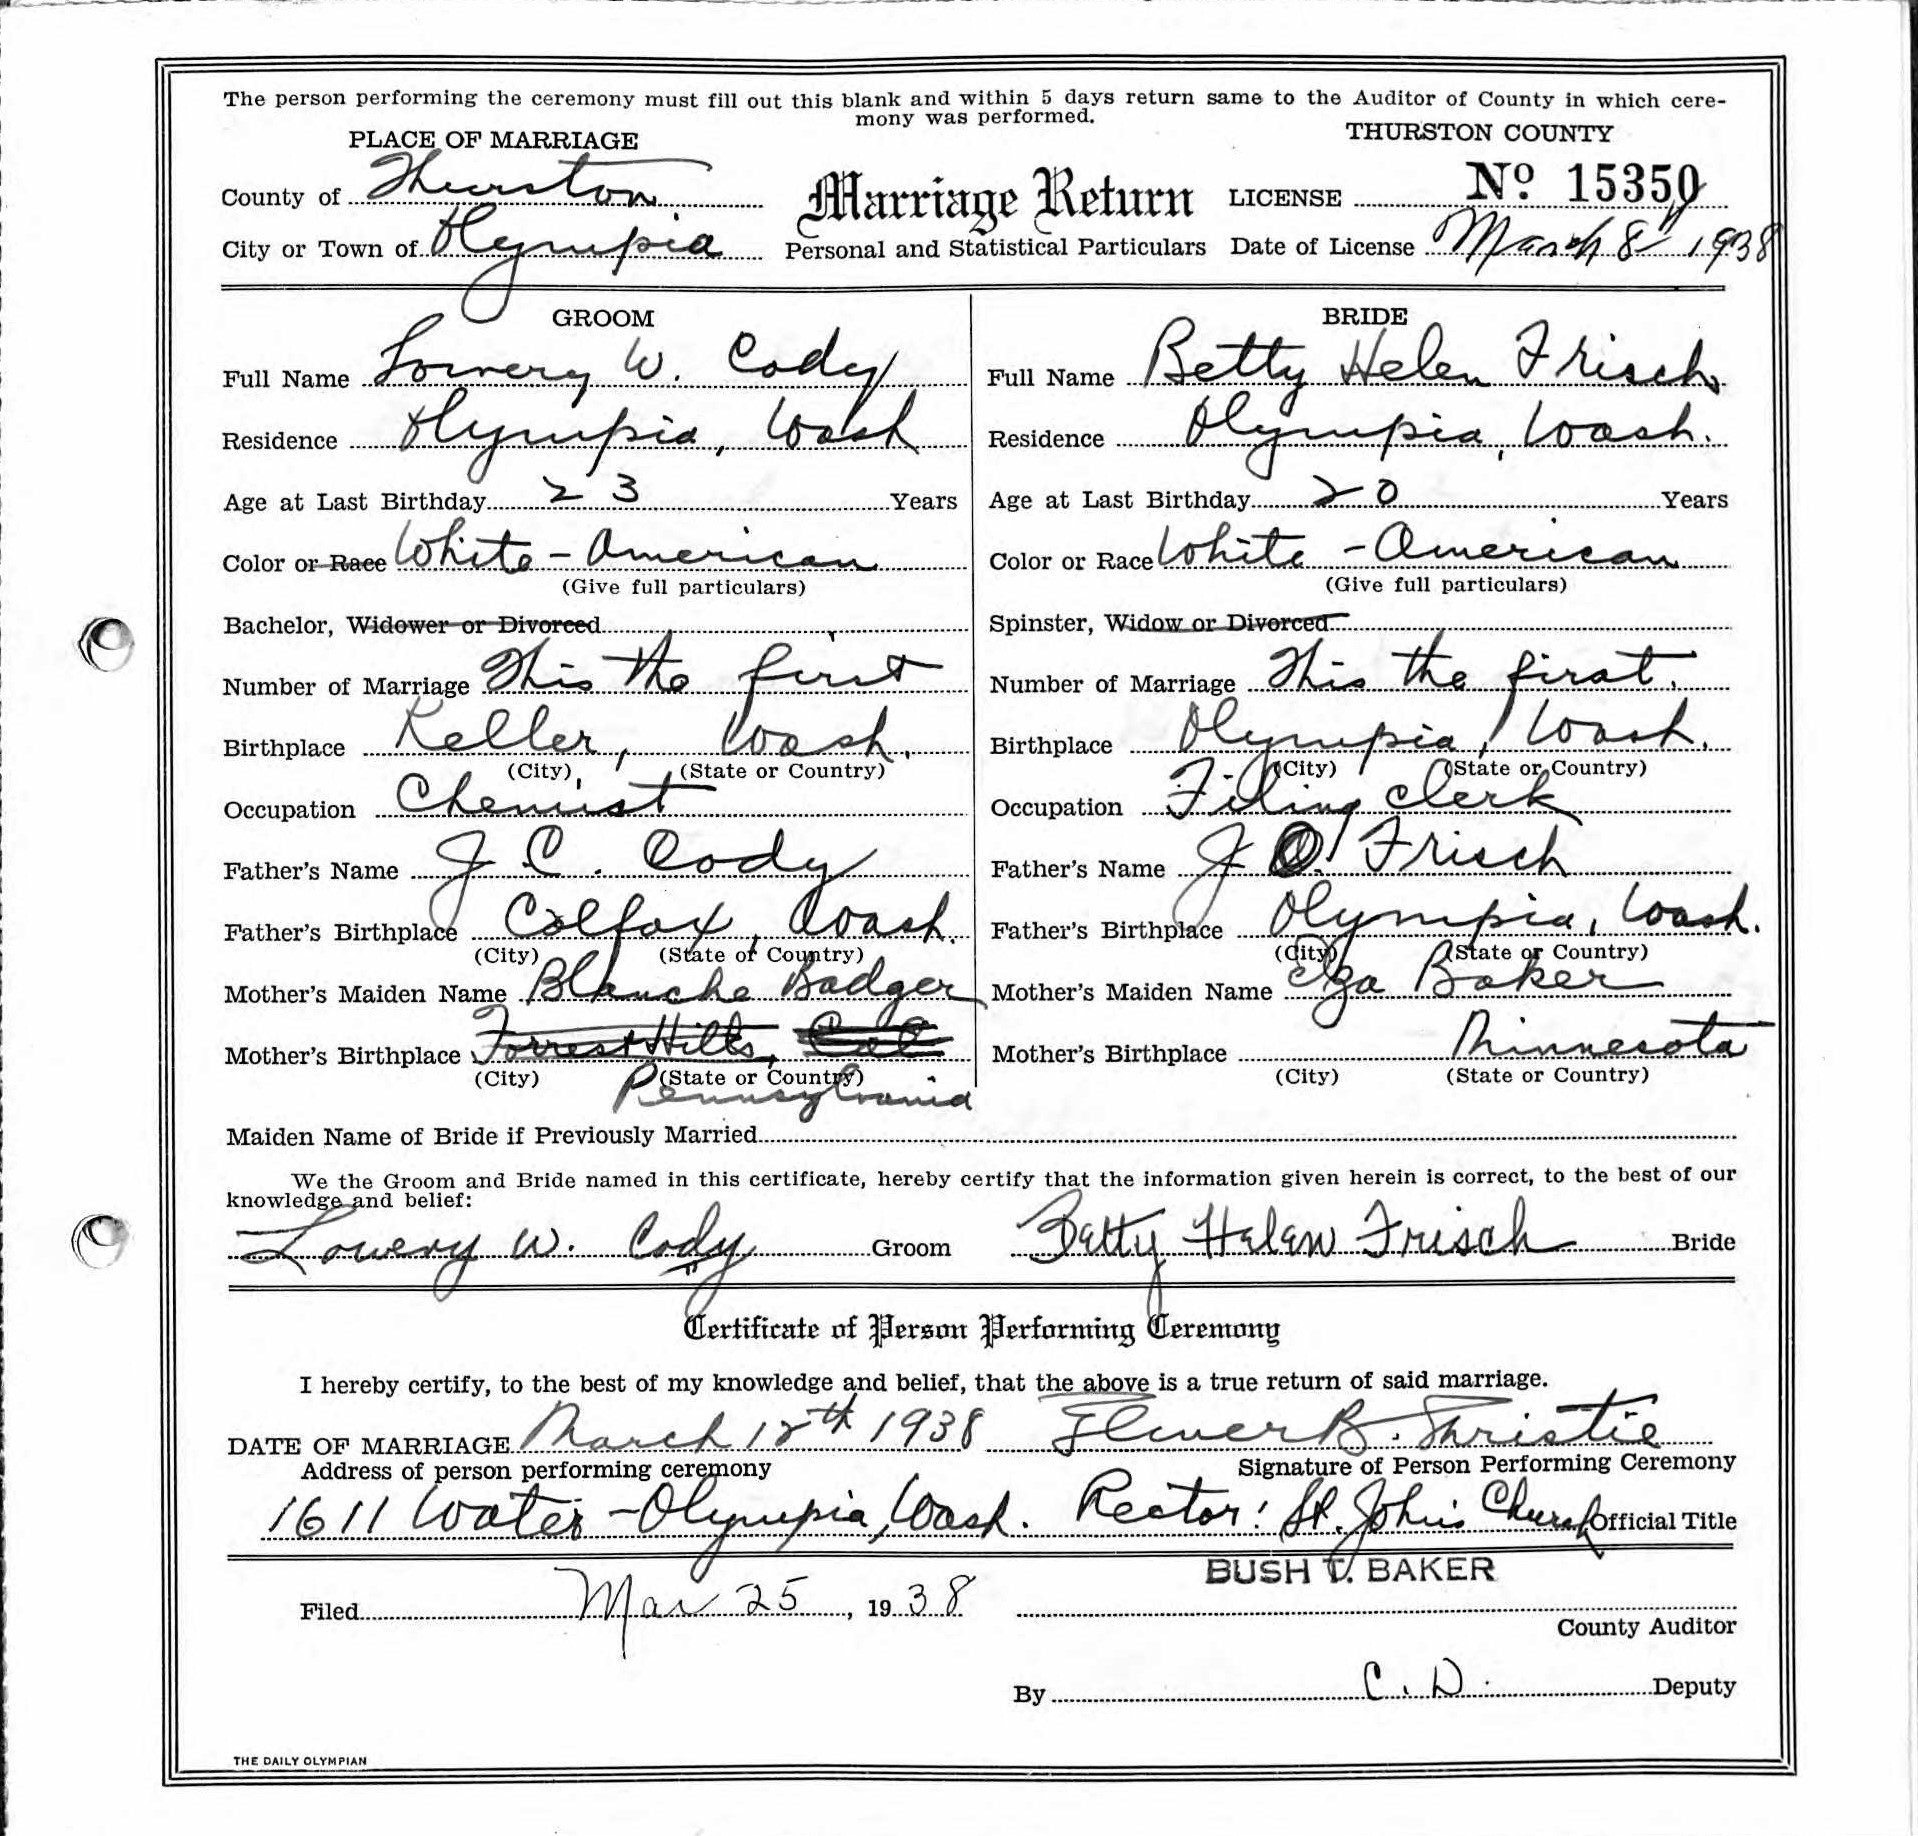 The person performing the ceremony must fill out this blank and within 5 days return same to the Auditor of County in which cere-
mony was performed.
PLACE OF MARRIAGE
THURSTON COUNTY
County of Thurston
Marriage Return
LICENSE Nº 15350
City or Town of Olympia
Personal and Statistical Particulars
Date of License March 8 1938
GROOM
Full Name Lowery W. Cody
Residence Olympia, Wash
Age at Last Birthday 23 Years
Color or Race White - American
(Give full particulars)
Bachelor, Widower or Divorced
Number of Marriage This the first
Birthplace Keller, Wash.
(City) (State or Country)
Occupation Chemist
Father's Name J. C. Cody
Father's Birthplace Colfax, Wash.
(City) (State or Country)
Mother's Maiden Name Blanche Badger
Mother's Birthplace Forrest Hills, Cal
(City) (State or Country)
Pennsylvania
BRIDE
Full Name Betty Helen Frisch
Residence Olympia, Wash.
Age at Last Birthday 20 Years
Color or Race White - American
(Give full particulars)
Spinster, Widow or Divorced
Number of Marriage This the first.
Birthplace Olympia, Wash.
(City) (State or Country)
Occupation Filing Clerk
Father's Name J O. Frisch
Father's Birthplace Olympia, Wash.
(City) (State or Country)
Mother's Maiden Name Baker
Mother's Birthplace Minnesota
(City) (State or Country)
Maiden Name of Bride if Previously Married
We the Groom and Bride named in this certificate, hereby certify that the information given herein is correct, to the best of our
knowledge and belief:
Lowery W. Cody Groom Betty Helen Frisch Bride
Certificate of Person Performing Ceremony
I hereby certify, to the best of my knowledge and belief, that the above is a true return of said marriage.
DATE OF MARRIAGE March 12th 1938 Elmer B. Christie
Address of person performing ceremony Signature of Person Performing Ceremony
1611 Water - Olympia, Wash. Rector: St. John's Church Official Title
BUSH T. BAKER
Filed Mar 25, 1938
County Auditor
By C. D. Deputy
THE DAILY OLYMPIAN